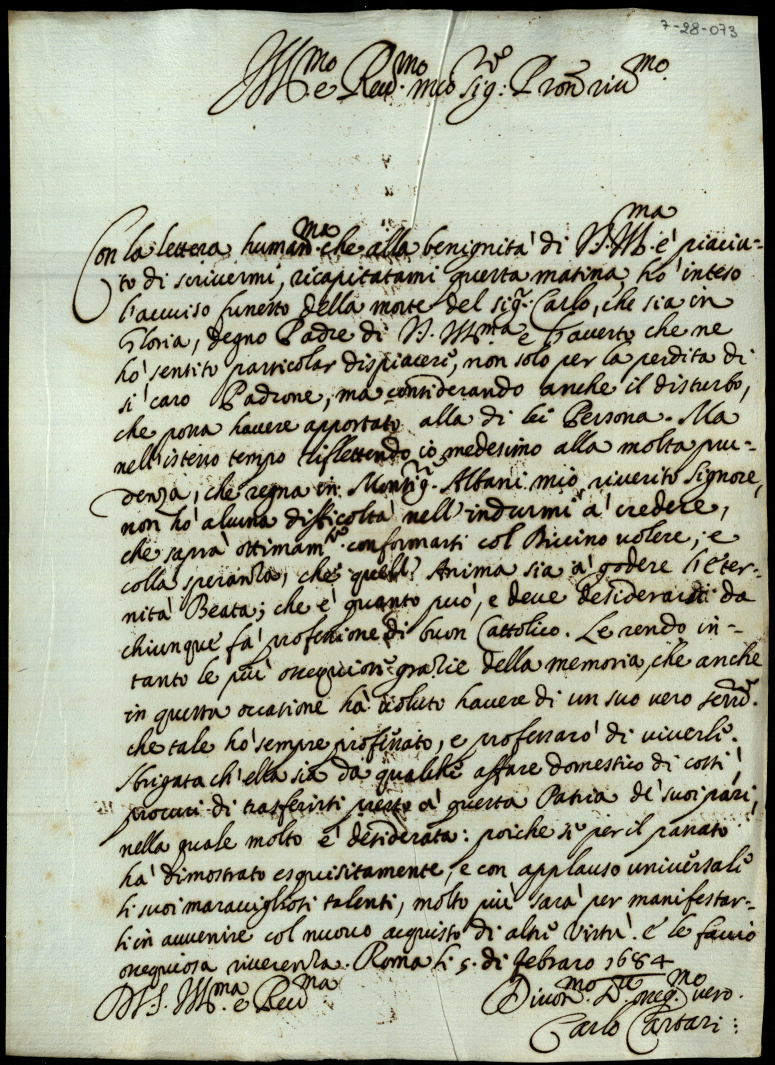 7-28-073
Ill.mo e Rev.mo mio Sig.re P'ron riv.mo
Con la lettera human.ma che alla benignità di V.S. Ill.ma è piaciu-
to di scrivermi, ricapitatami questa matina, hò inteso
l'avviso funesto della morte del sig.r Carlo, che sia in
Gloria, degno Padre di V.S. Ill.ma e l'accerto che ne
hò sentito particolar dispiacere, non solo per la perdita di
sì caro Padrone, ma considerando anche il disturbo,
che possa havere apportato alla di lei Persona. Ma
nell'istesso tempo riflettendo io medesimo alla molta pru-
denza, che regna in Monsig.r Albani mio riverito Signore,
non hò alcuna difficoltà nell'indurmi à credere,
che saprà ottimam.te conformarsi col Divino volere, e
colla speranza, che quell'Anima sia à godere l'eter-
nità Beata; che è quanto può, e deve desiderarsi da
chiunque fà professione di buon Cattolico. Le rendo in-
tanto le più ossequiose grazie della memoria, che anche
in questa occasione hà voluto havere di un suo vero serv.re
che tale hò sempre professato, e professarò di viverle.
Sbrigata ch'ella sia da qualche affare domestico di costì,
procuri di trasferirsi presto à questa Patria de' suoi pari,
nella quale molto è desiderata: poiche se per il passato
hà dimostrato esquisitamente, e con applauso universale
li suoi maravigliosi talenti, molto più sarà per manifestar-
li in avvenire col nuovo acquisto di altre virtù. E le faccio
ossequiosa riverenza. Roma li 5. di febraro 1684
V.S. Ill.ma e Rev.ma
Divot.mo et osseq.mo vero.
Carlo Cartari: